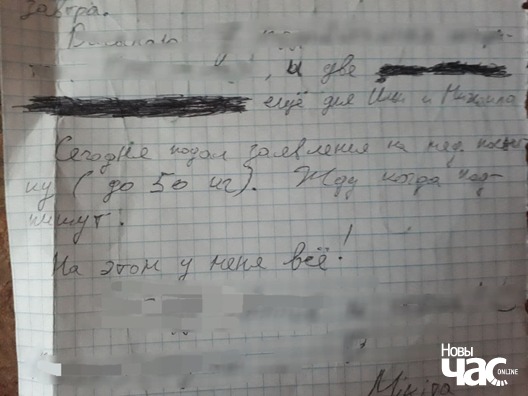 Завтра.
Высылаю
, и две
ещё для Ильи и Михаила
Сегодня подал заявление на мед. посыл
ку (до 50 кг). Жду когда под-
пишут.
На этом у меня всё!
Мікіта
Новы
Час
ONLINE